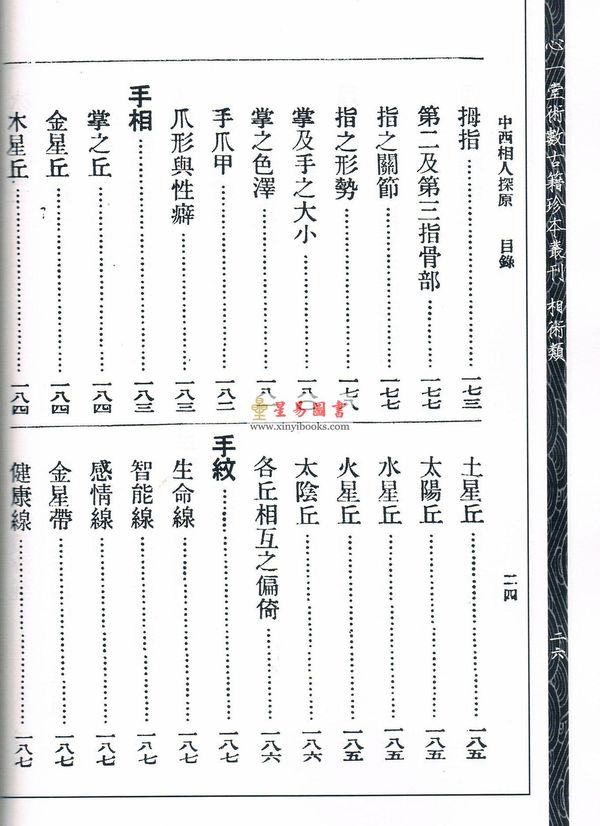 心一堂術數古籍珍本叢刊 相術類
二六
中西相人探原 目錄
二四
拇指……一七三
第二及第三指骨部……一七七
指之關節……一七七
指之形勢……一七八
掌及手之大小……一八〇
掌之色澤……一八
手爪甲……一八二
爪形與性癖……一八三
手相……一八三
掌之丘……一八四
金星丘……一八四
木星丘……一八四
土星丘……一八五
太陽丘……一八五
水星丘……一八五
火星丘……一八五
太陰丘……一八六
各丘相互之偏倚……一八六
手紋……一八七
生命線……一八七
智能線……一八七
感情線……一八七
金星帶……一八七
健康線……一八七
星易圖書
www.xinyibooks.com